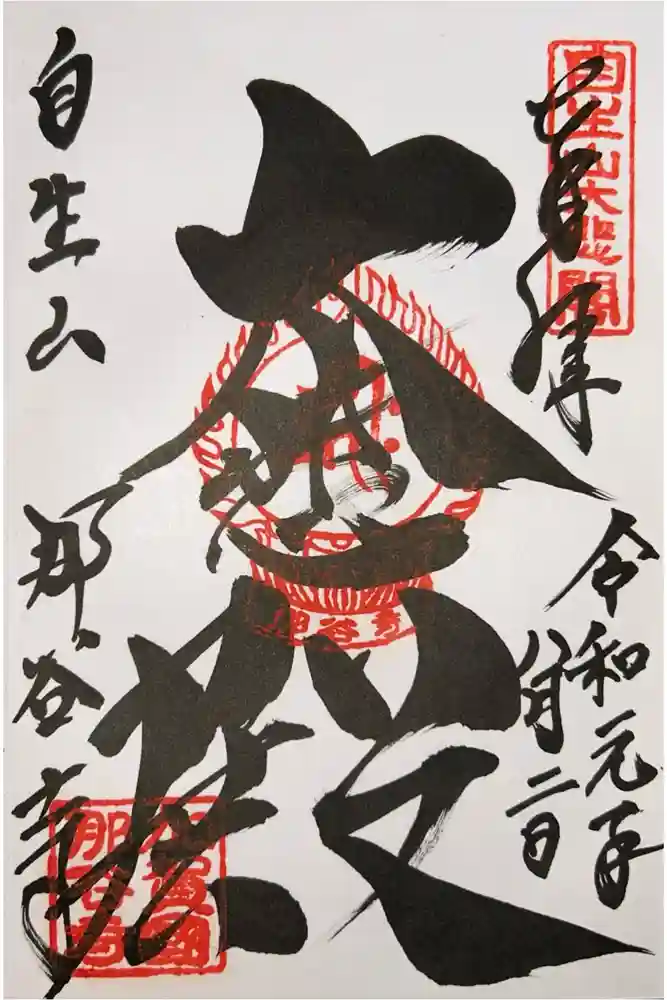 奉拝
自生山大悲閣
令和元年
八月二日
那谷寺
自生山
那谷寺
加賀國
那谷寺